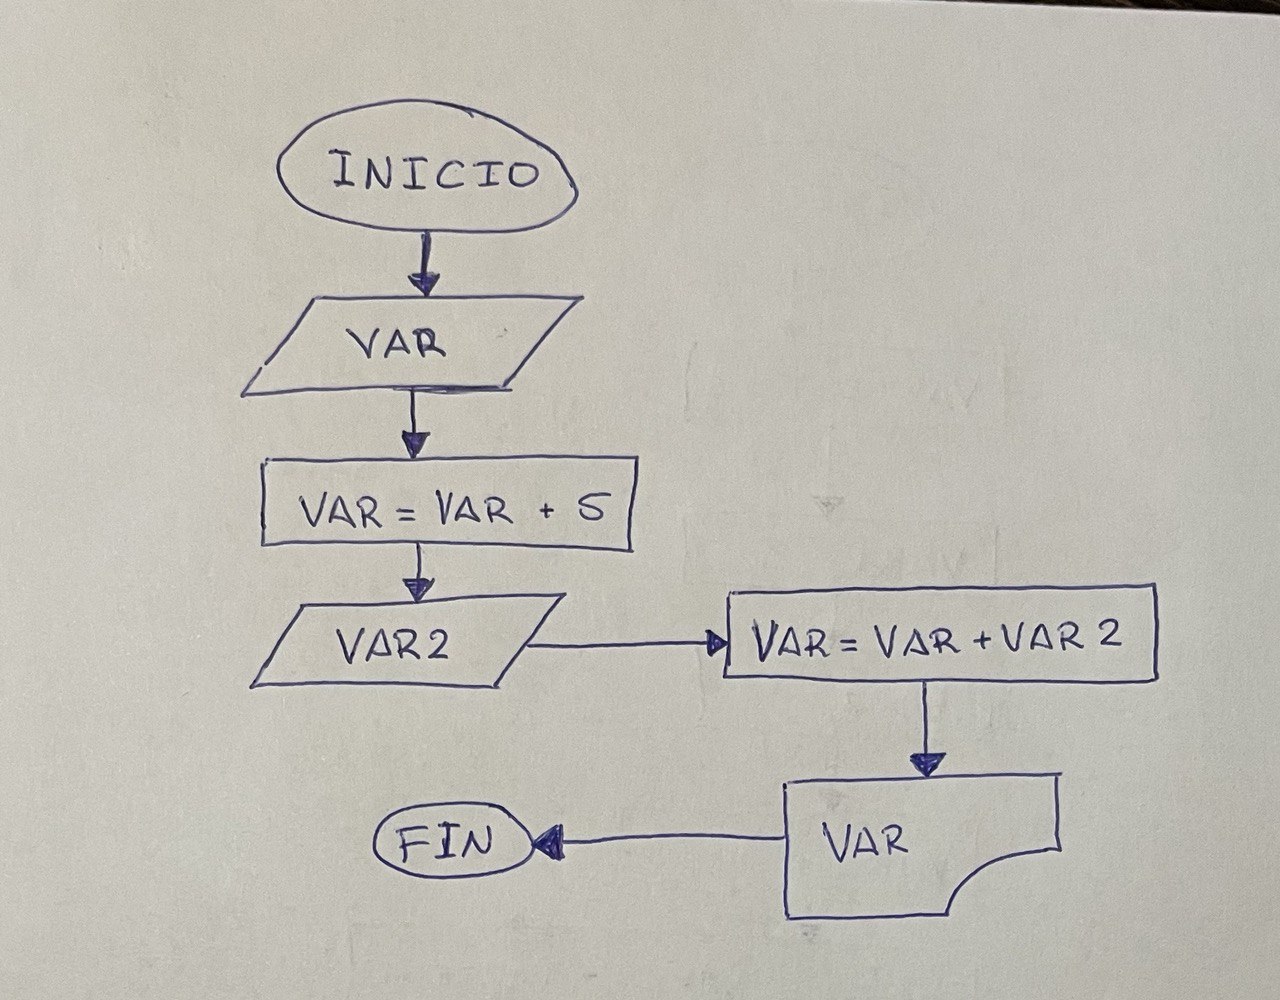 INICIO
VAR
VAR = VAR + 5
VAR2
VAR = VAR + VAR 2
VAR
FIN